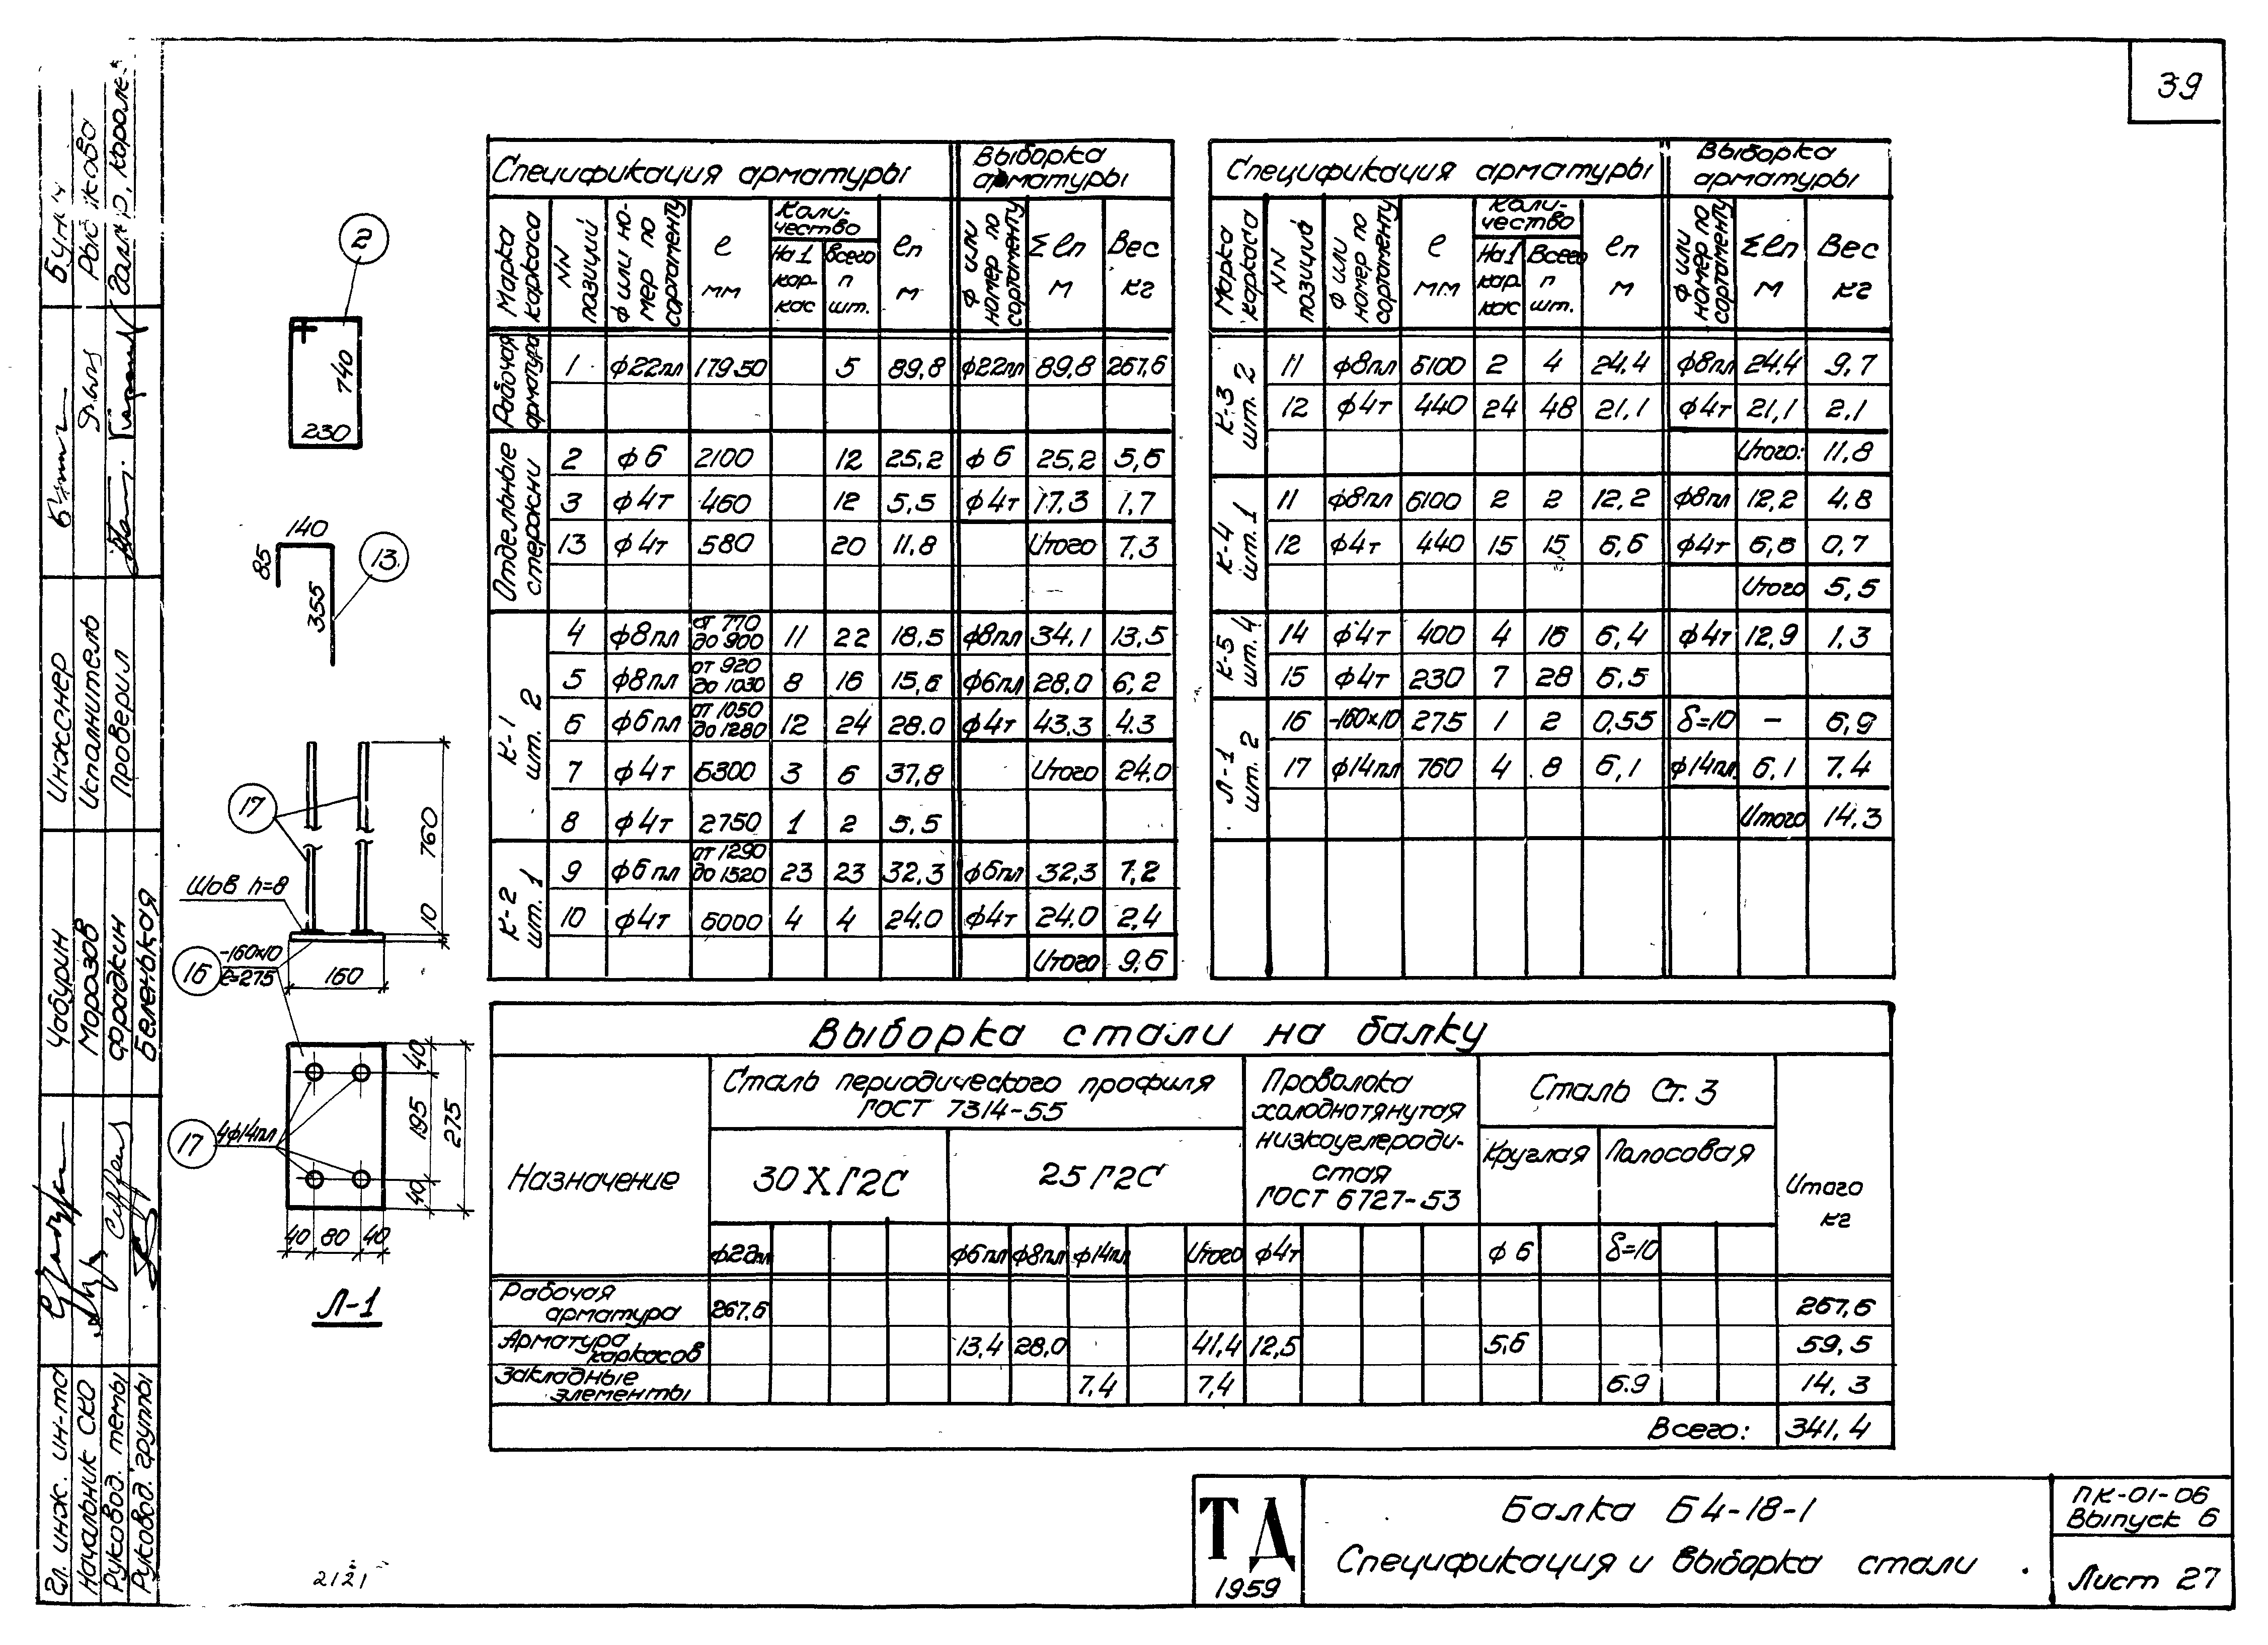 39
Спецификация арматуры
Выборка арматуры
Марка каркаса
NN позиций
ф или номер по сортаменту
ℓ мм
Количество
На 1 каркас
Всего п шт.
ℓп м
ф или номер по сортаменту
Σℓп м
Вес кг
Рабочая арматура
1 ф22пл 17950 5 89,8 ф22пл 89,8 267,6
Отдельные стержни
2 ф6 2100 12 25,2 ф6 25,2 5,6
3 ф4т 460 12 5,5 ф4т 17,3 1,7
13 ф4т 580 20 11.8 Итого 7,3
К-1 шт. 2
4 ф8пл от 770 до 900 11 22 18,5 ф8пл 34,1 13,5
5 ф8пл от 920 до 1030 8 16 15,6 ф6пл 28.0 6,2
6 ф6пл от 1050 до 1280 12 24 28.0 ф4т 43.3 4.3
7 ф4т 6300 3 6 37,8 Итого 24.0
8 ф4т 2750 1 2 5,5
К-2 шт. 1
9 ф6пл от 1290 до 1520 23 23 32,3 ф6пл 32,3 7,2
10 ф4т 6000 4 4 24.0 ф4т 24.0 2,4
Итого 9,6
Спецификация арматуры
Выборка арматуры
Марка каркаса
NN позиций
ф или номер по сортаменту
ℓ мм
Количество
На 1 каркас
Всего п шт.
ℓп м
ф или номер по сортаменту
Σℓп м
Вес кг
К-3 шт. 2
11 ф8пл 6100 2 4 24,4 ф8пл 24.4 9,7
12 ф4т 440 24 48 21,1 ф4т 21,1 2.1
Итого: 11,8
К-4 шт. 1
11 ф8пл 6100 2 2 12,2 ф8пл 12,2 4,8
12 ф4т 440 15 15 6,6 ф4т 6,6 0,7
Итого 5,5
К-5 шт. 4
14 ф4т 400 4 16 6,4 ф4т 12,9 1.3
15 ф4т 230 7 28 6,5
Л-1 шт. 2
16 -160×10 275 1 2 0,55 δ=10 – 6,9
17 ф14пл 760 4 8 6,1 ф14пл 6,1 7.4
Итого 14,3
Выборка стали на балку
Назначение
Сталь периодического профиля
ГОСТ 7314-55
30ХГ2С
25Г2С
Проволока
холоднотянутая
низкоуглероди-
стая
ГОСТ 6727-53
Сталь Ст. 3
Круглая
Полосовая
Итого
кг
ф22пл ф6пл ф8пл ф14пл Итого ф4т ф6 δ=10
Рабочая арматура 267,6 267,6
Арматура каркасов 13,4 28,0 41,4 12,5 5,6 59,5
Закладные элементы 7,4 7,4 6.9 14,3
Всего: 341,4
2
740
230
140
13
85
355
17
760
10
Шов h=8
16
-160×10
ℓ=275
160
17
4ф14пл
40
195
40
275
40 80 40
Л-1
Инженер
Исполнитель
Проверил
Чабурин
Морозов
Фрадкин
Беленькая
Гл. инж. ин-та
Начальник СКО
Руковод. темы
Руковод. группы
2121
ТД
1959
Балка Б4-18-1
Спецификация и выборка стали
ПК-01-06
Выпуск 6
Лист 27